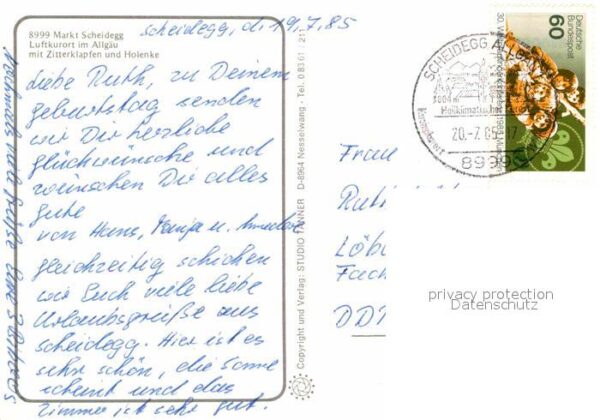 8999 Markt Scheidegg
Luftkurort im Allgäu
mit Zitterklapfen und Holenke
Scheidegg, d. 19.7.85
Liebe Ruth, zu Deinem
Geburtstag senden
wir Dir herzliche
Glückwünsche und
wünschen Dir alles
Gute
von Hans, Tanja u. Anneliese
gleichzeitig schicken
wir Euch viele liebe
Urlaubsgrüße aus
Scheidegg. Hier ist es
sehr schön, die Sonne
scheint und das
Zimmer ist sehr gut.
Nochmals viele Grüße
Copyright und Verlag: STUDIO TANNER · D-8964 Nesselwang · Tel. 0 83 61 / 211
SCHEIDEGG, ALLGÄU
Heilklimatischer Kurort
20.-7.85-17
8999
Deutsche
Bundespost
60
Frau
Löb
Fach
DDR
privacy protection
Datenschutz